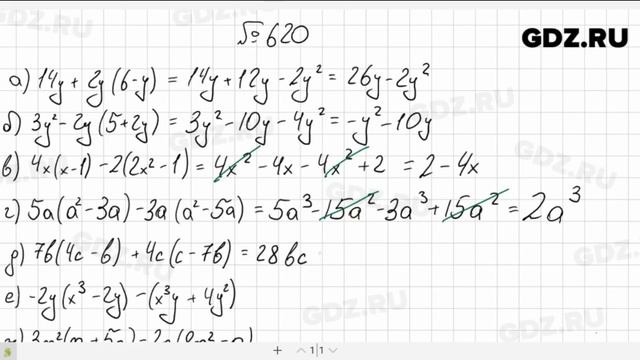 №620
GDZ.RU
а) 14y + 2y(6-y) = 14y + 12y - 2y² = 26y - 2y²
б) 3y² - 2y(5+2y) = 3y² - 10y - 4y² = -y² - 10y
в) 4x(x-1) - 2(2x²-1) = 4x² - 4x - 4x² + 2 = 2 - 4x
г) 5a(a²-3a) - 3a(a²-5a) = 5a³ - 15a² - 3a³ + 15a² = 2a³
д) 7b(4c-b) + 4c(c-7b) = 28bc
е) -2y(x³-2y) - (x³y + 4y²)
1|1